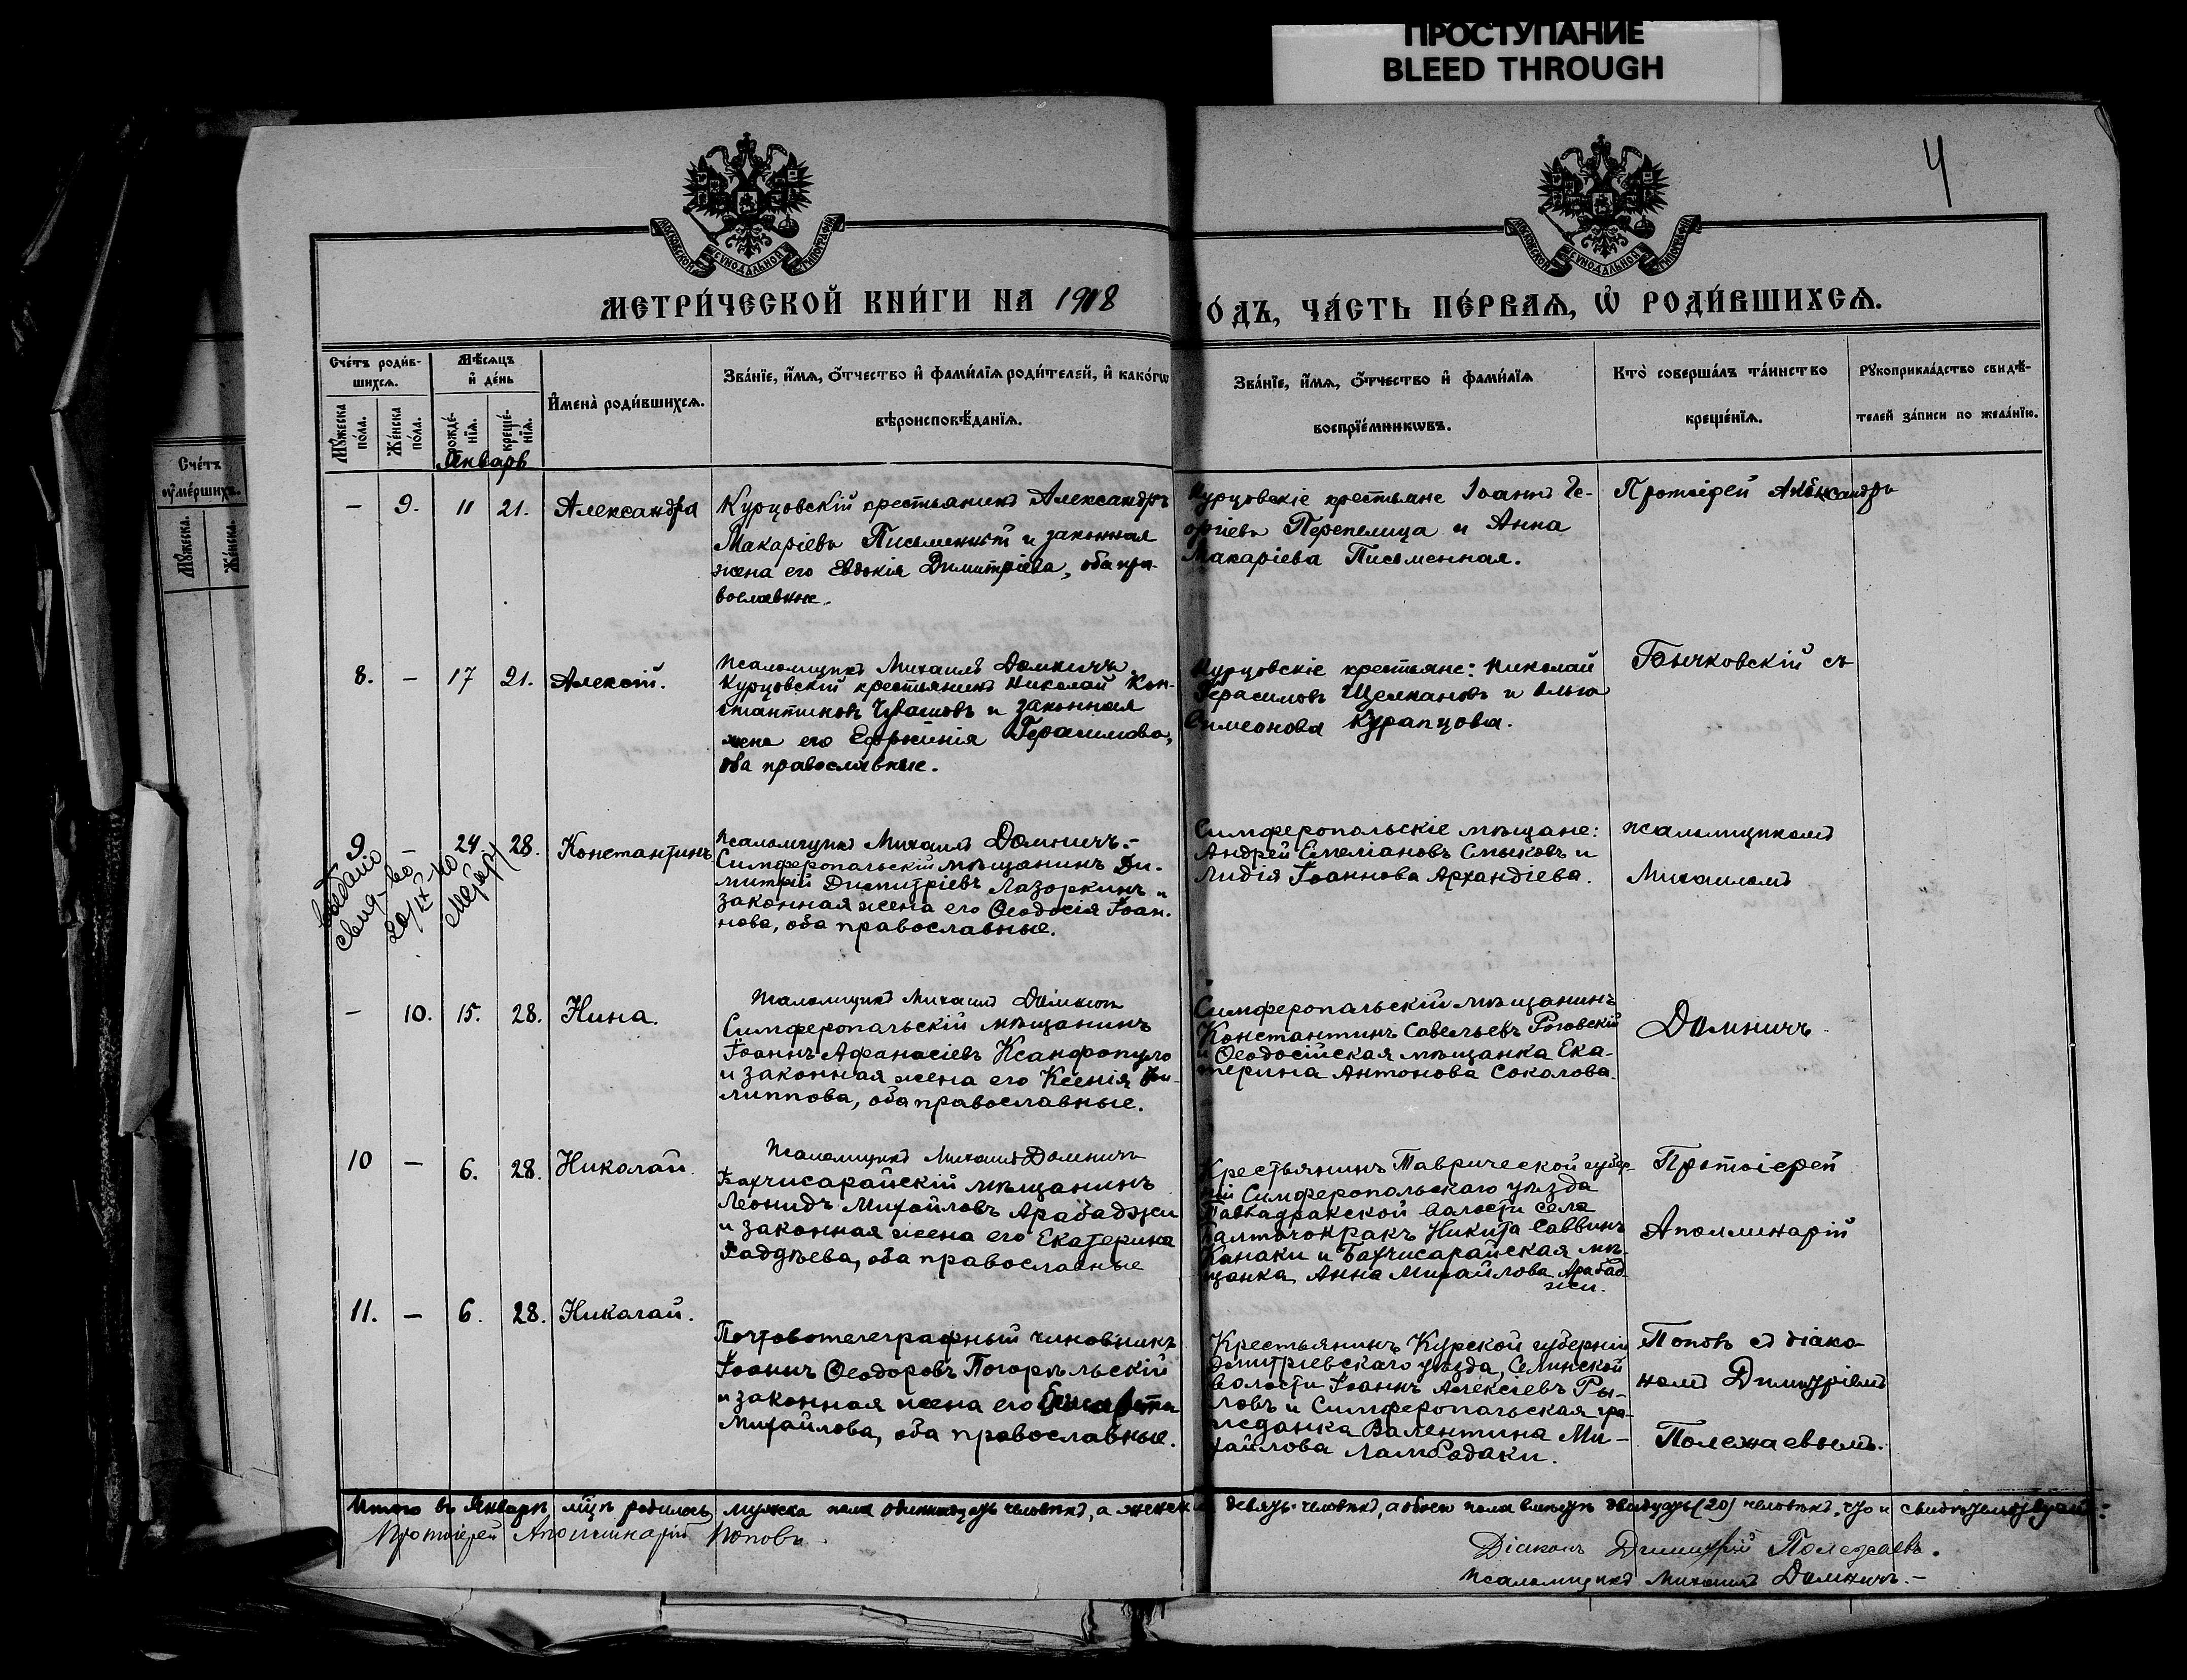 ПРОСТУПАНИЕ
BLEED THROUGH
4
МОСКОВСКОЙ СѴНОДАЛЬНОЙ ТИПОГРАФІИ
МОСКОВСКОЙ СѴНОДАЛЬНОЙ ТИПОГРАФІИ
МЕТРИ́ЧЕСКОЙ КНИ́ГИ НА 1918
ГО́ДЪ, ЧА́СТЬ ПЕ́РВАѦ, Ѡ҆ РОДИ́ВШИХСѦ.
Счéтъ роди́в-
шихсѧ.
Мꙋ́жеска по́ла.
Же́нска по́ла.
Мѣ́сѧцъ
и҆ де́нь
рожде́-
нїѧ.
креще́-
нїѧ.
И҆мена̀ роди́вшихсѧ.
Зва́нїе, и҆́мѧ, ѻ҆́тчество и҆ фами́лїѧ роди́телей, и҆ како́гѡ
вѣроисповѣ́данїѧ.
Зва́нїе, и҆́мѧ, ѻ҆́тчество и҆ фами́лїѧ
воспрїе́мникѡвъ.
Кто̀ соверша́лъ та́инство
креще́нїѧ.
Рꙋкоприкла́дство свидѣ́-
телей за́писи по жела́нїю.
Счéтъ
ᲂу҆ме́ршихъ.
Мꙋ́жеска.
Же́нска.
Январь
— 9. 11 21. Александра
Курцовскій крестьянинъ Александръ
Макаріевъ Письменный и законная
жена его Евдокія Димитріева, оба пра-
вославные.
Курцовскіе крестьяне Іоаннъ Ге-
оргіевъ Перепелица и Анна
Макаріева Письменная.
Протоіерей Александръ
8. — 17 21. Алексій.
Псаломщикъ Михаилъ Домничъ
Курцовскій крестьянинъ Николай Кон-
стантиновъ Чувашовъ и законная
жена его Ефросинія Герасимова,
оба православные.
Курцовскіе крестьяне: Николай
Герасимовъ Щелкановъ и Ольга
Симеонова Курапцова.
съ
9 — 24 28. Константинъ
Выдано
свид-во
20/IX-40
Псаломщикъ Михаилъ Домничъ.-
Симферопольскій мѣщанинъ Ди-
митрій Димитріевъ Лазоркинъ и
законная жена его Ѳеодосія Іоан-
нова, оба православные.
Симферопольскіе мѣщане:
Андрей Емеліановъ Смыковъ и
Лидія Іоаннова Архандіева.
псаломщикомъ
Михаиломъ
— 10. 15. 28. Нина.
Псаломщикъ Михаилъ Домничъ
Симферопольскій мѣщанинъ
Іоаннъ Аѳанасіевъ Ксанфопуло
и законная жена его Ксенія Фи-
липпова, оба православные.
Симферопольскій мѣщанинъ
Константинъ Савельевъ Роговскій
и Ѳеодосійская мѣщанка Ека-
терина Антонова Соколова.
Домничъ
10 — 6. 28. Николай.
Псаломщикъ Михаилъ Домничъ
Бахчисарайскій мѣщанинъ
Леонидъ Михайловъ Арабаджи
и законная жена его Екатерина
Фаддѣева, оба православные
Крестьянинъ Таврической губер-
ніи Симферопольскаго уѣзда
волости села
Никита Саввинъ
Канаки и Бахчисарайская мѣ-
щанка Анна Михайлова Арабад-
жи.
Протоіерей
Аполлинарій
11. — 6. 28. Николай.
Почтовотелеграфный чиновникъ
Іоаннъ Ѳеодоровъ Погорѣльскій
и законная жена его
Михайлова, оба православные.
Крестьянинъ Курской губерніи
Дмитріевскаго уѣзда, Селинской
волости Іоаннъ Алексіевъ Ры-
ловъ и Симферопольская гра-
жданка Валентина Ми-
хайлова Ламбодаки.
Поповъ съ діако-
номъ Димитріемъ
Полежаевымъ.
Итого въ Январѣ м-цѣ родилось мужска пола одиннадцать человѣкъ, а женска девять человѣкъ, а обоего пола вмѣстѣ двадцать (20) человѣкъ, что и свидѣтельствуемъ:
Протоіерей Аполлинарій Поповъ
Діаконъ Димитрій Полежаевъ.
Псаломщикъ Михаилъ Домничъ.-